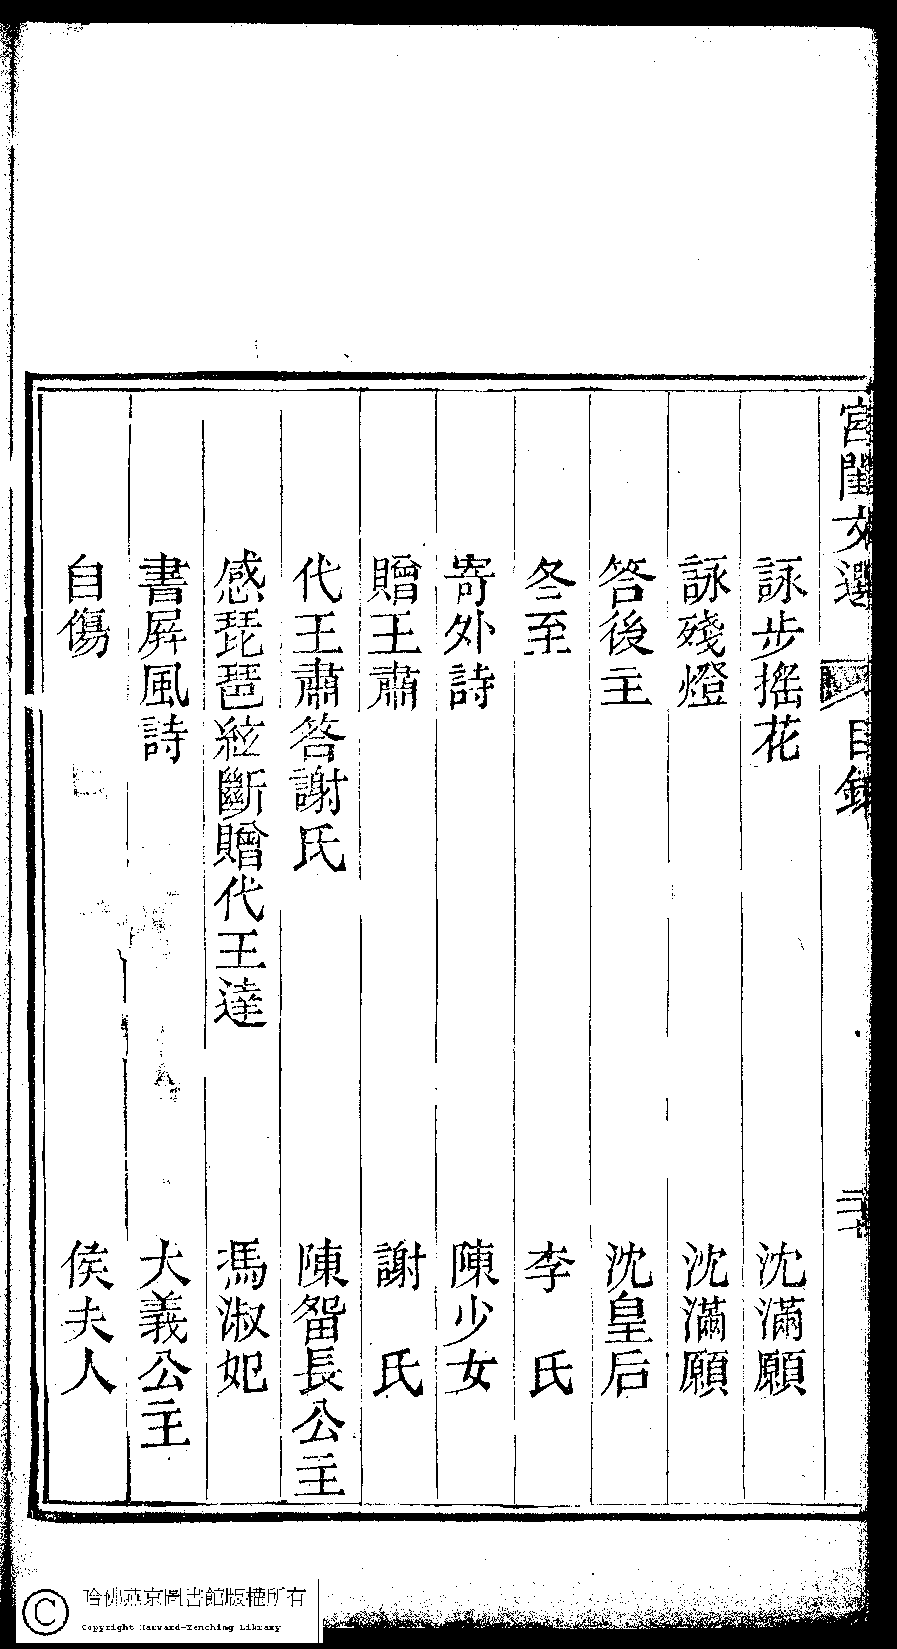 宮閨文選 目錄
詠步搖花 沈滿願
詠殘燈 沈滿願
答後主 沈皇后
冬至 李氏
寄外詩 陳少女
贈王肅 謝氏
代王肅答謝氏 陳畱長公主
感琵琶絃斷贈代王達 馮淑妃
書屏風詩 大義公主
自傷 侯夫人
哈佛燕京圖書館版權所有
Copyright Harvard-Yenching Library